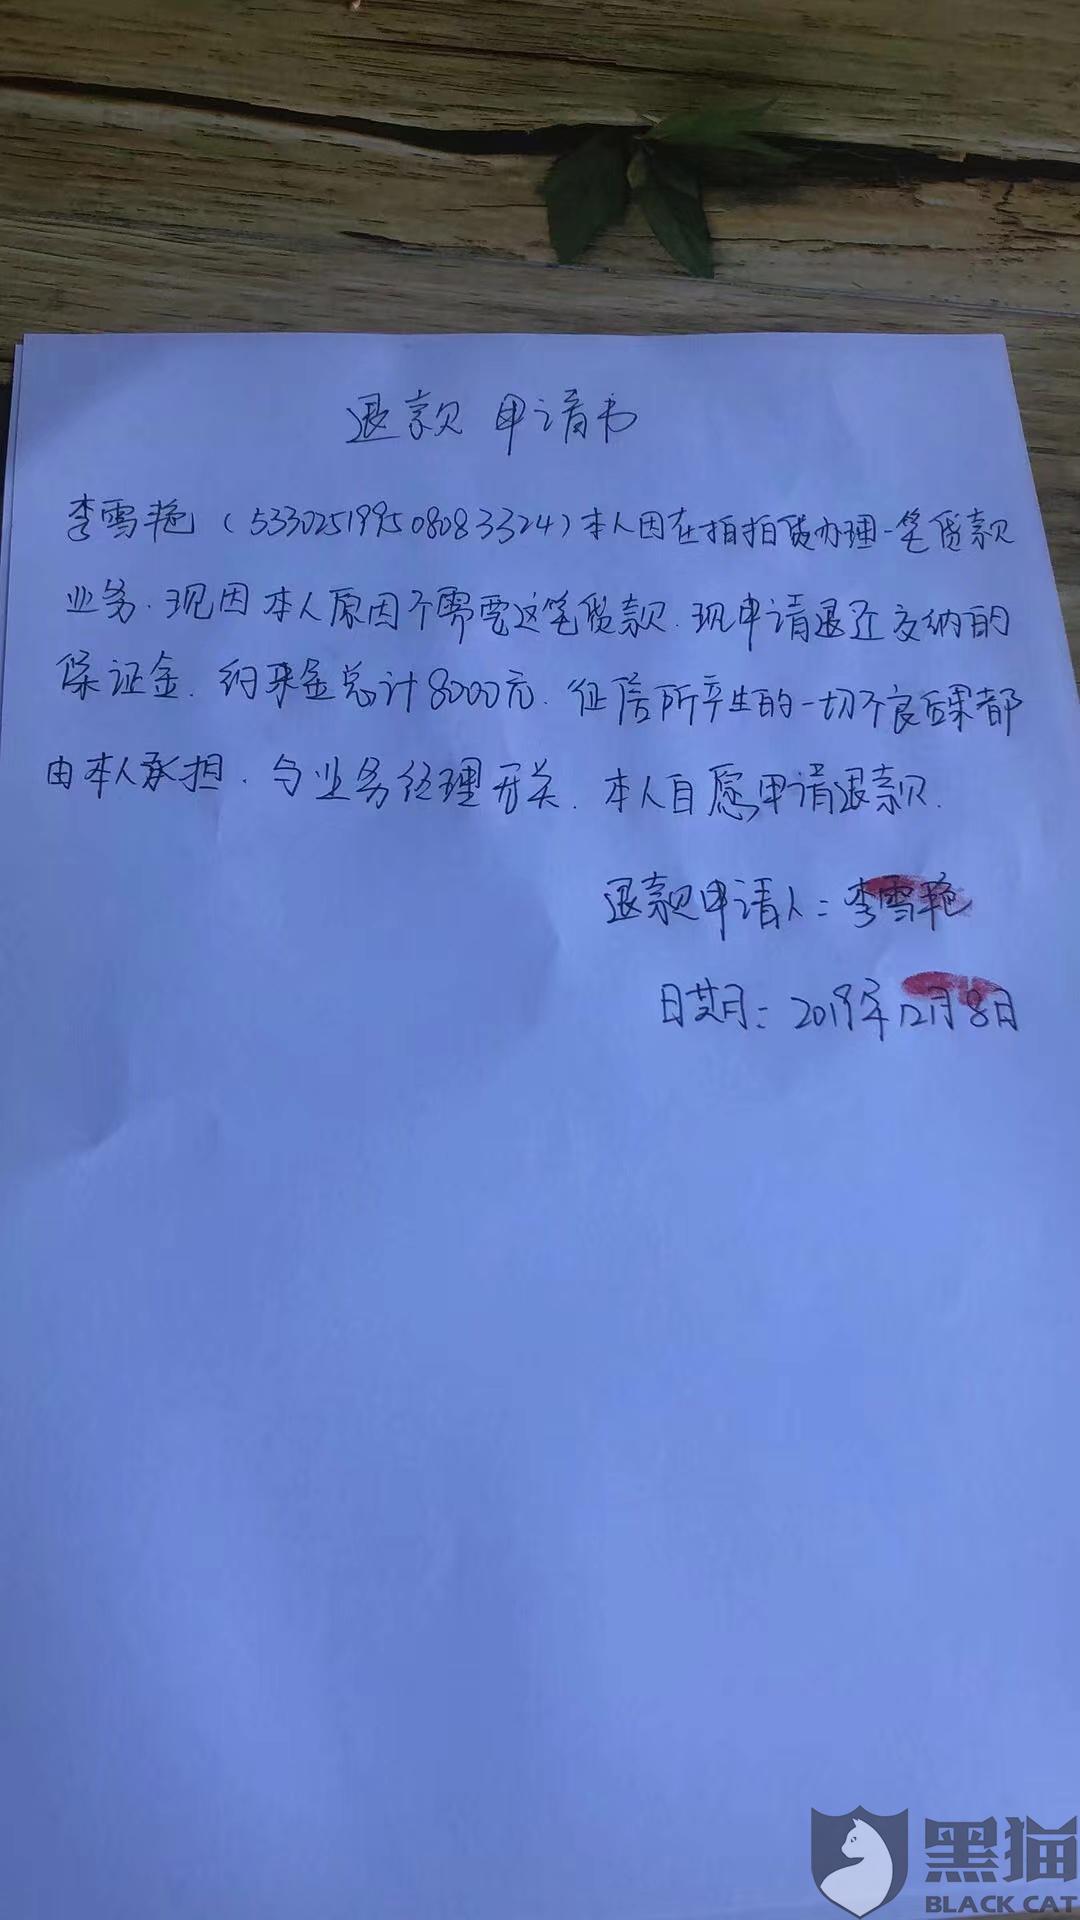 退款申请书
李雪艳（533025199508083324）本人因在拍拍贷办理一笔贷款
业务.现因本人原因不需要这笔贷款.现申请退还交纳的
保证金.约来金总计8000元.征信所产生的一切不良后果都
由本人承担.与业务经理无关.本人自愿申请退款.
退款申请人：李雪艳
日期：2019年12月8日
黑猫
BLACK CAT